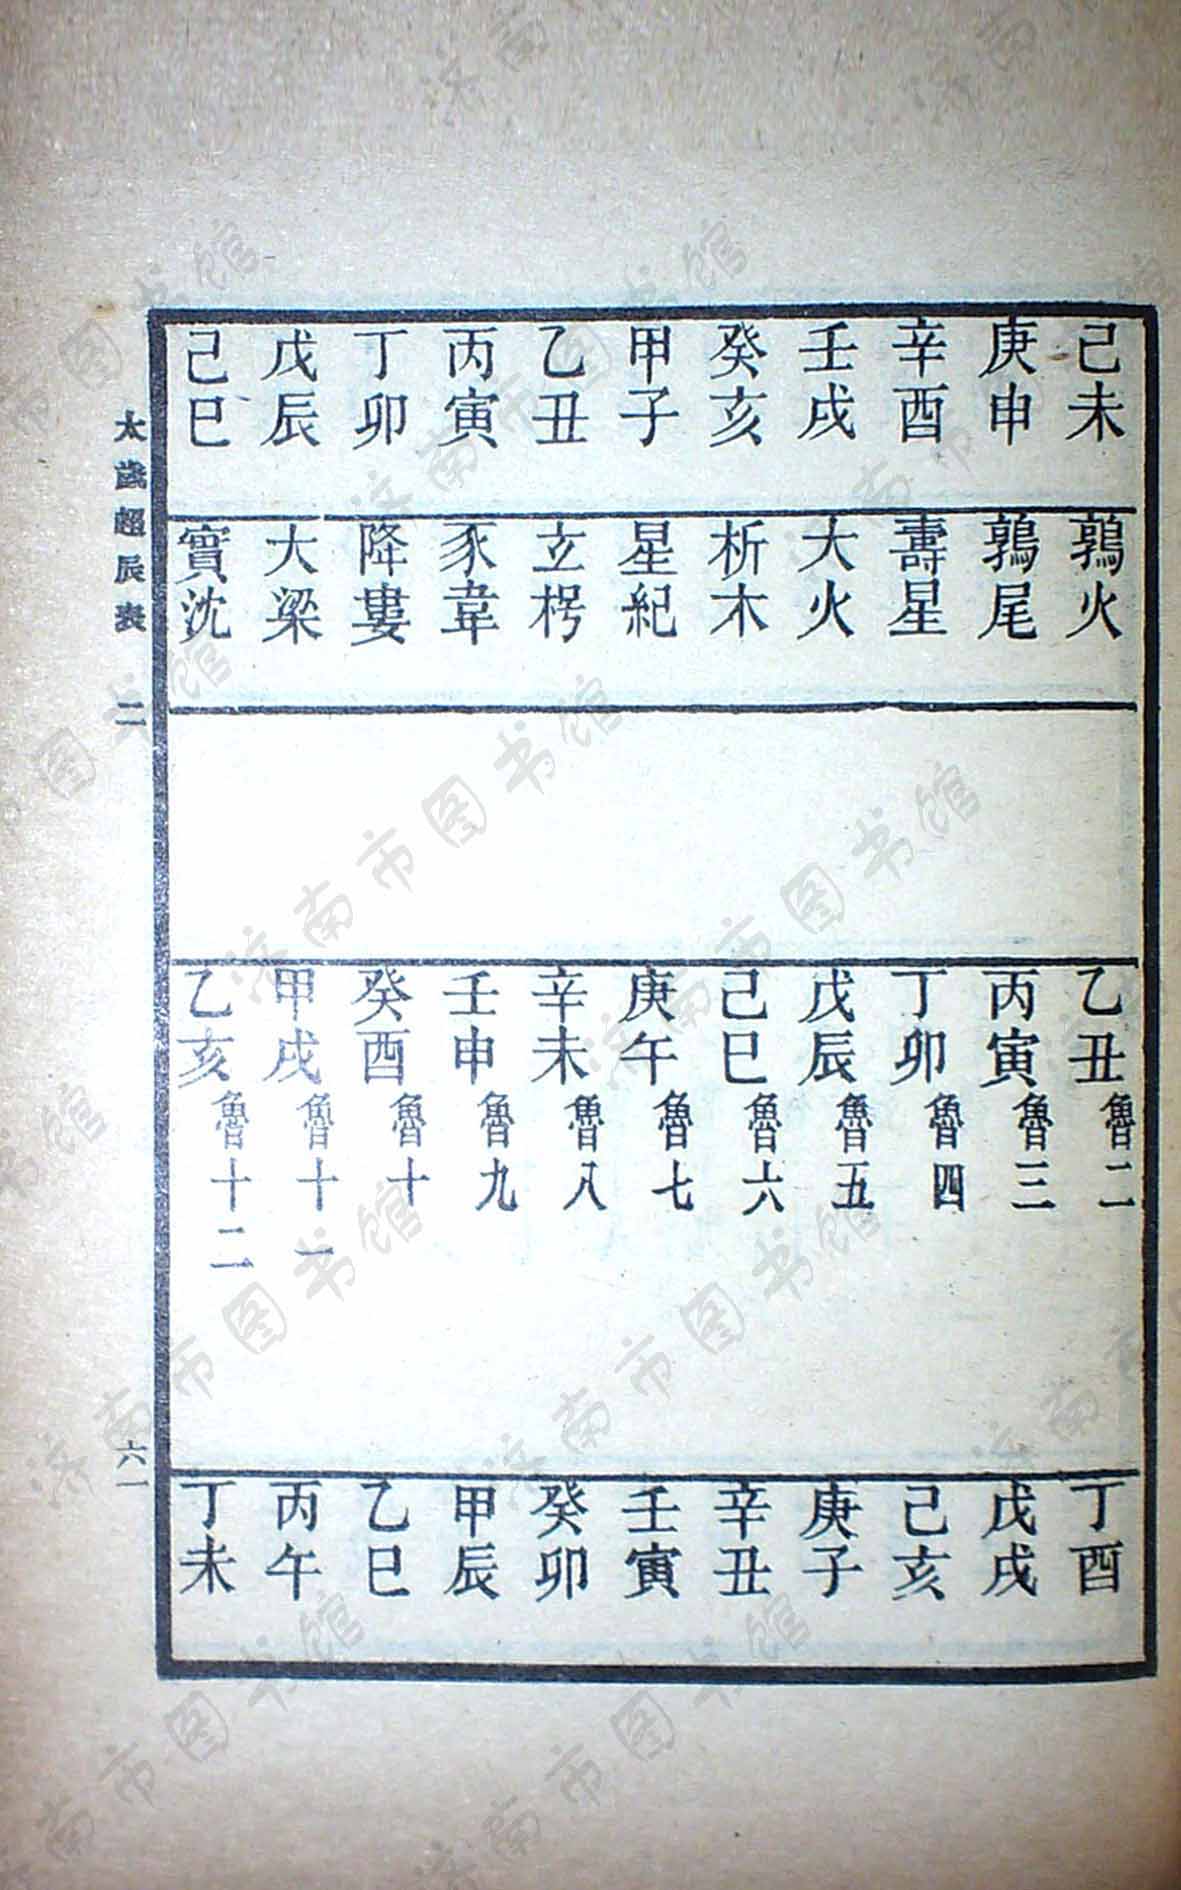 己未 鶉火 乙丑 魯二 丁酉
庚申 鶉尾 丙寅 魯三 戊戌
辛酉 壽星 丁卯 魯四 己亥
壬戌 大火 戊辰 魯五 庚子
癸亥 析木 己巳 魯六 辛丑
甲子 星紀 庚午 魯七 壬寅
乙丑 玄枵 辛未 魯八 癸卯
丙寅 豕韋 壬申 魯九 甲辰
丁卯 降婁 癸酉 魯十 乙巳
戊辰 大梁 甲戌 魯十一 丙午
己巳 實沈 乙亥 魯十二 丁未
太歲超辰表 二 六一
济南市图书馆